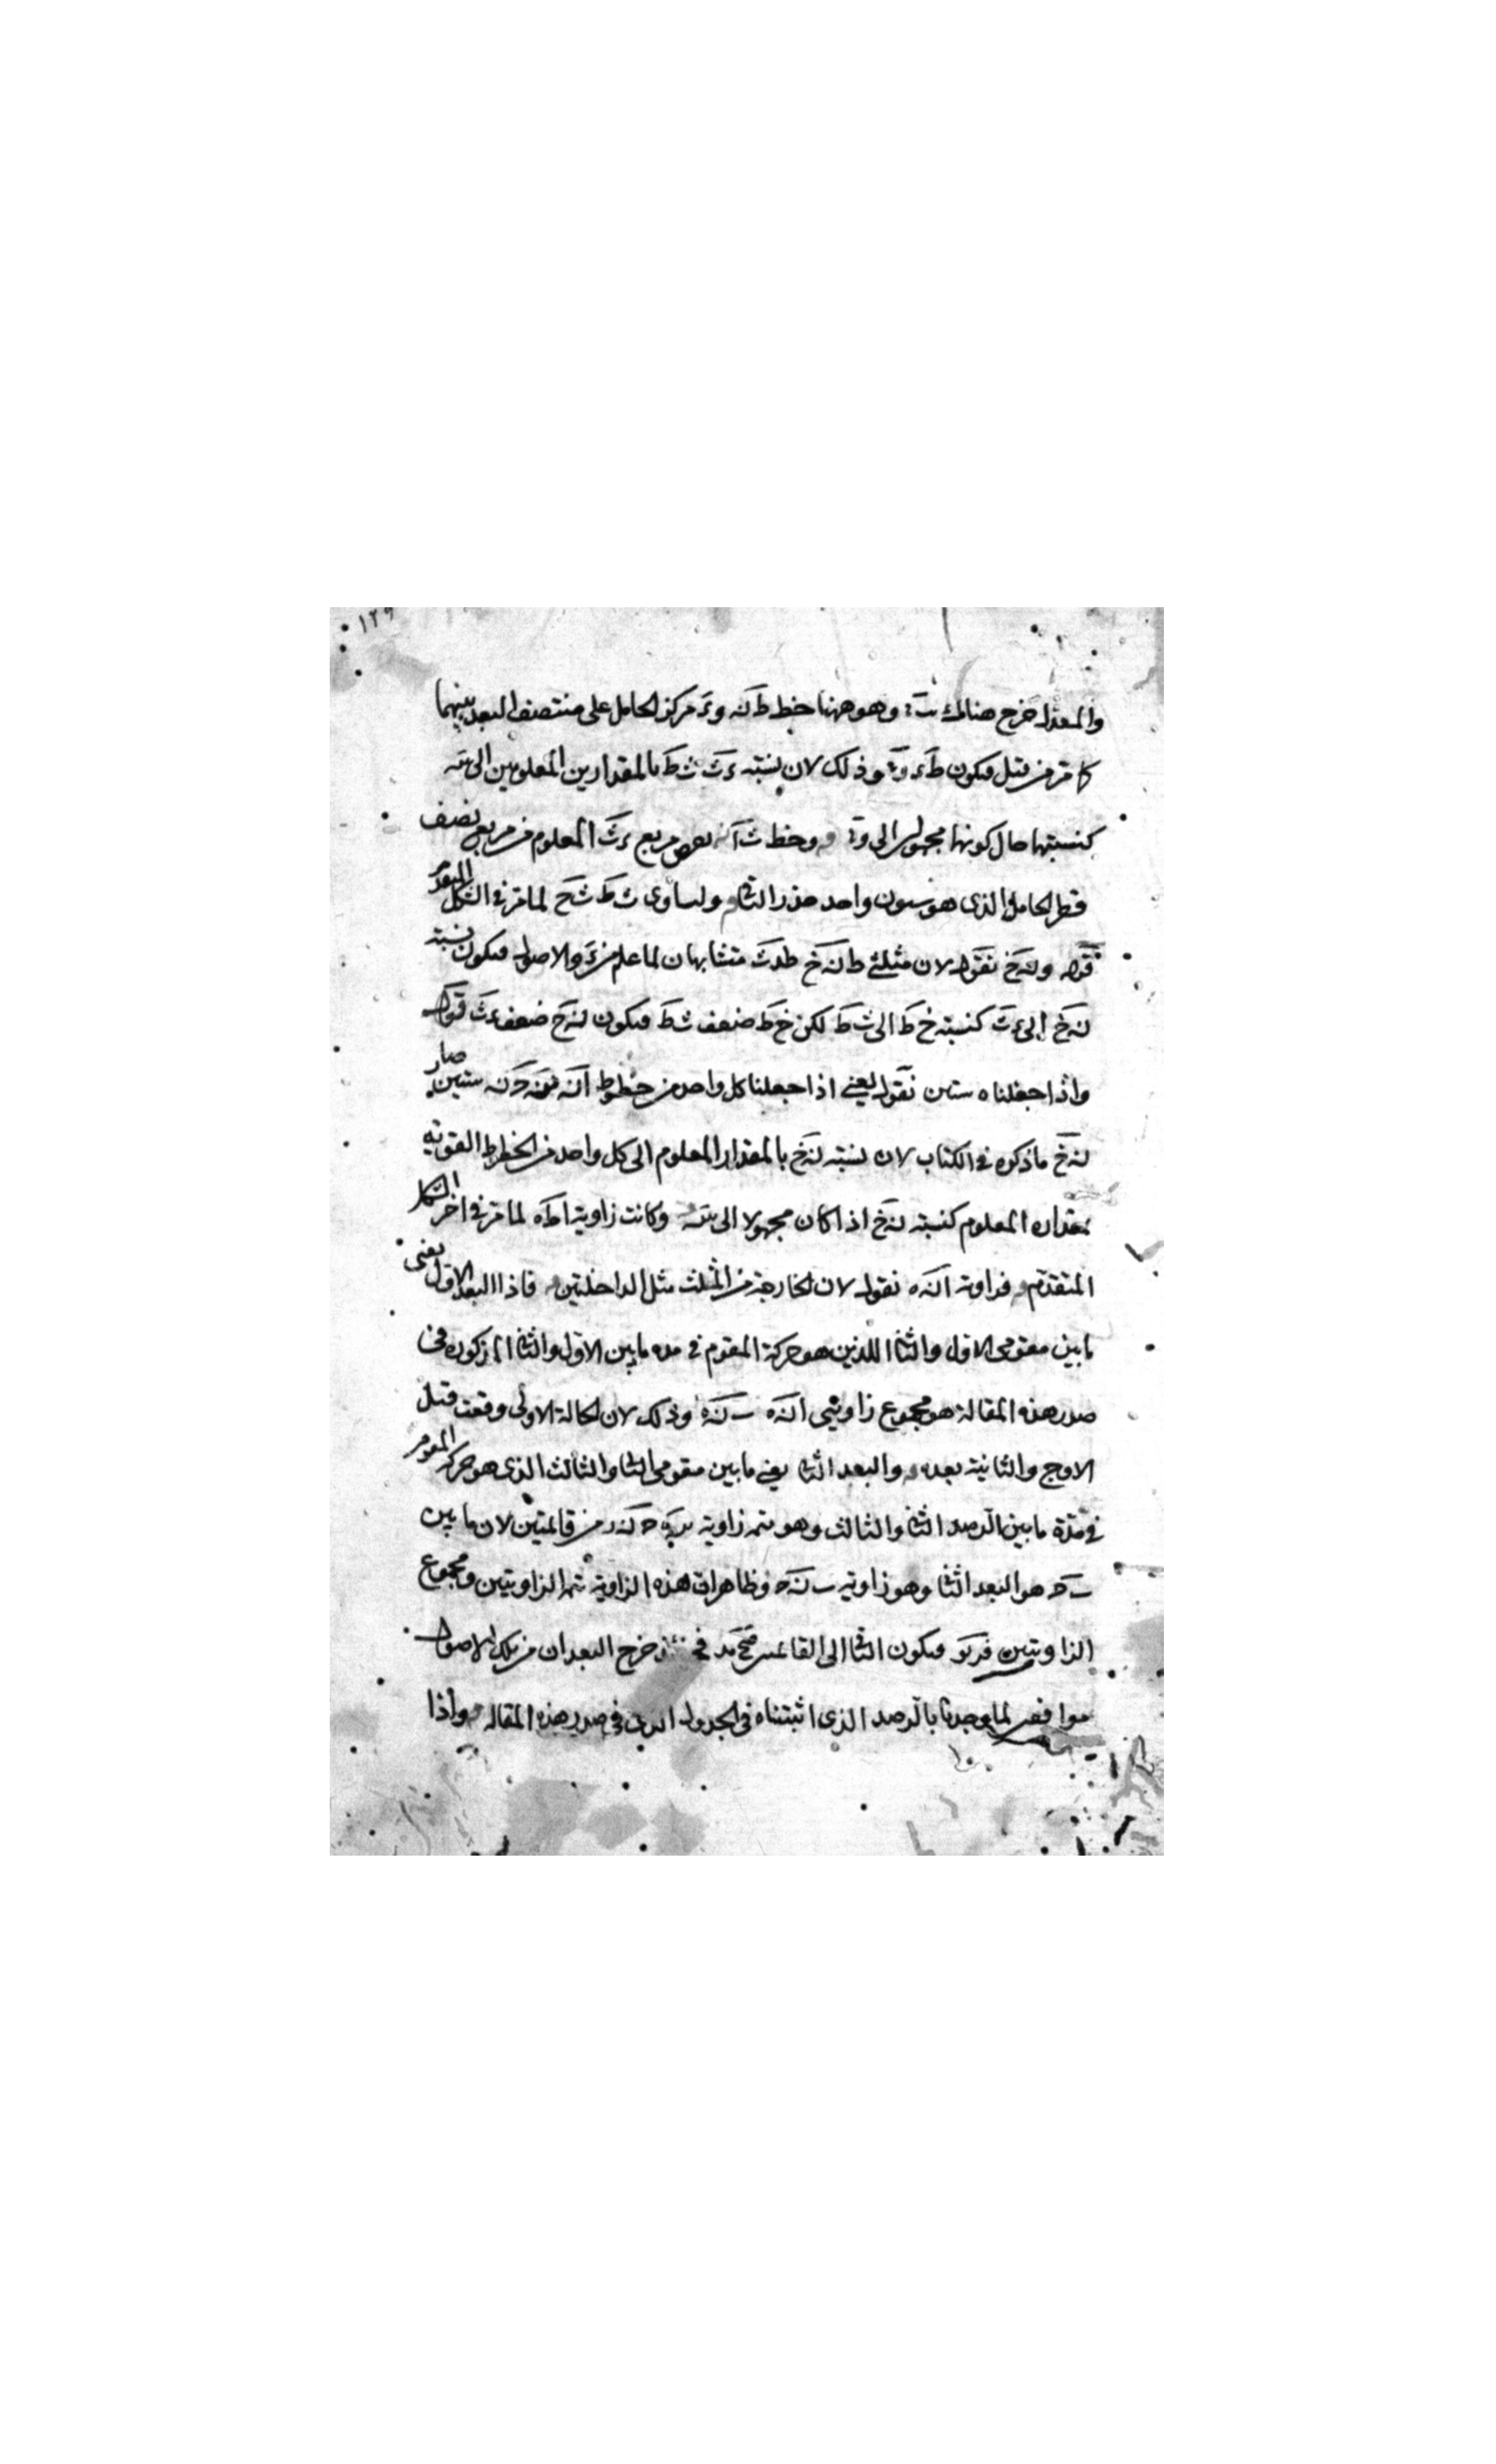 ١٢٩
والمعدل خرج هنالك وهو ههنا خط ط نه و ء مركز الحامل على منتصف البعد بينهما
كما مر من قبل فيكون وذلك لان نسبة ءث ث ط بالمقدارين المعلومين الى
كنسبتها حال كونها مجهولين الى وخط ث مربع ءث المعلوم من مربع نصف
قطر الحامل الذى هو ستون واحد جذر الباقى ولساوى ث ط ث خ لما مر فى الشكل المتقدم
قوله و نه خ نقول لان مثلثى ط نه خ ط ء ث متشابهان لما علم من والاصول فيكون نسبة
نه خ الى ءث كنسبة خ ط الى ث ط لكن خ ط ضعف ث ط فيكون نه خ ضعف ءث قوله
واذا جعلناه ستين نقول يعنى اذا جعلنا كل واحد من خطوط ا نه ب نه ح نه ستين صار
نه خ ما ذكره فى الكتاب لان نسبة نه خ بالمقدار المعلوم الى كل واحد من الخطوط
بمقداره المعلوم كنسبة نه خ اذا كان مجهولا الى وكانت زاوية ا ط ه لما مر فى اخر الشكل
المتقدم فزاوية ا نه ه نقول لان الخارجة من المثلث مثل الداخلتين فاذا البعد الاول يعنى
ما بين مقومى الاول والثانى اللذين هو حركة المقوم فى مده ما بين الاول والثانى المذكوره فى
صدر هذه المقالة هو مجموع زاويتى ا نه ه ب نه ه وذلك لان الحالة الاولى وقعت قبل
الاوج والثانية بعده والبعد الثانى يعنى ما بين مقومى الثانى والثالث الذى هو حركة المقوم
فى مدة ما بين الرصد الثانى والثالث وهو متمم زاوية ح نه ر من قائمتين لان ما بين
ب ح هو البعد الثانى وهو زاوية ب نه ح وظاهر ان هذه الزاوية تتمم الزاويتين ومجموع
الزاويتين فيكون الثانى الى القائمتين خرج البعدان من تلك الاصول
موافقين لما وجدنا بالرصد الذى اثبتناه فى الجدول الذى فى صدر هذه المقاله واذا